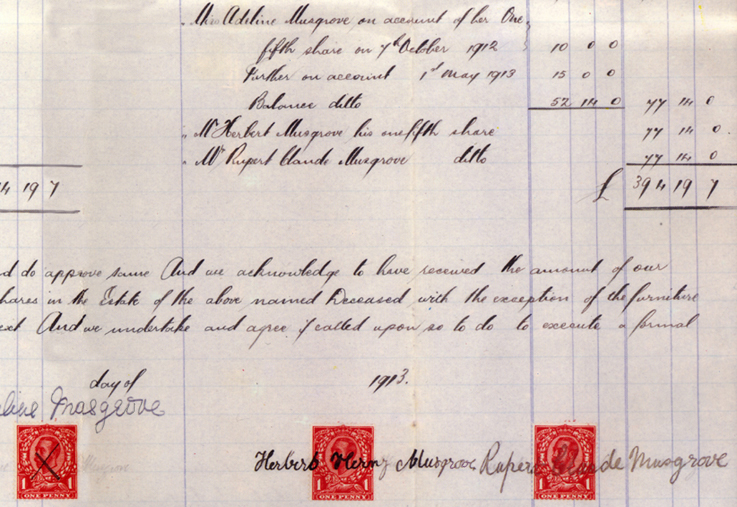 " Miss Adeline Musgrove on account of her One
fifth share on 7th October 1912 10 0 0
Further on account 1st May 1913 15 0 0
Balance ditto 52 14 0 77 14 0
" Mr Herbert Musgrove his onefifth share 77 14 0
" Mr Rupert Claude Musgrove ditto 77 14 0
4 19 7 £ 394 19 7
d do approve same And we acknowledge to have received the amount of our
hares in the Estate of the above named Deceased with the exception of the furniture
ext And we undertake and agree if called upon so to do to execute a formal
day of 1913.
line Musgrove
Herbert Henry Musgrove Rupert Claude Musgrove
1 ONE PENNY 1 1 ONE PENNY 1 1 ONE PENNY 1